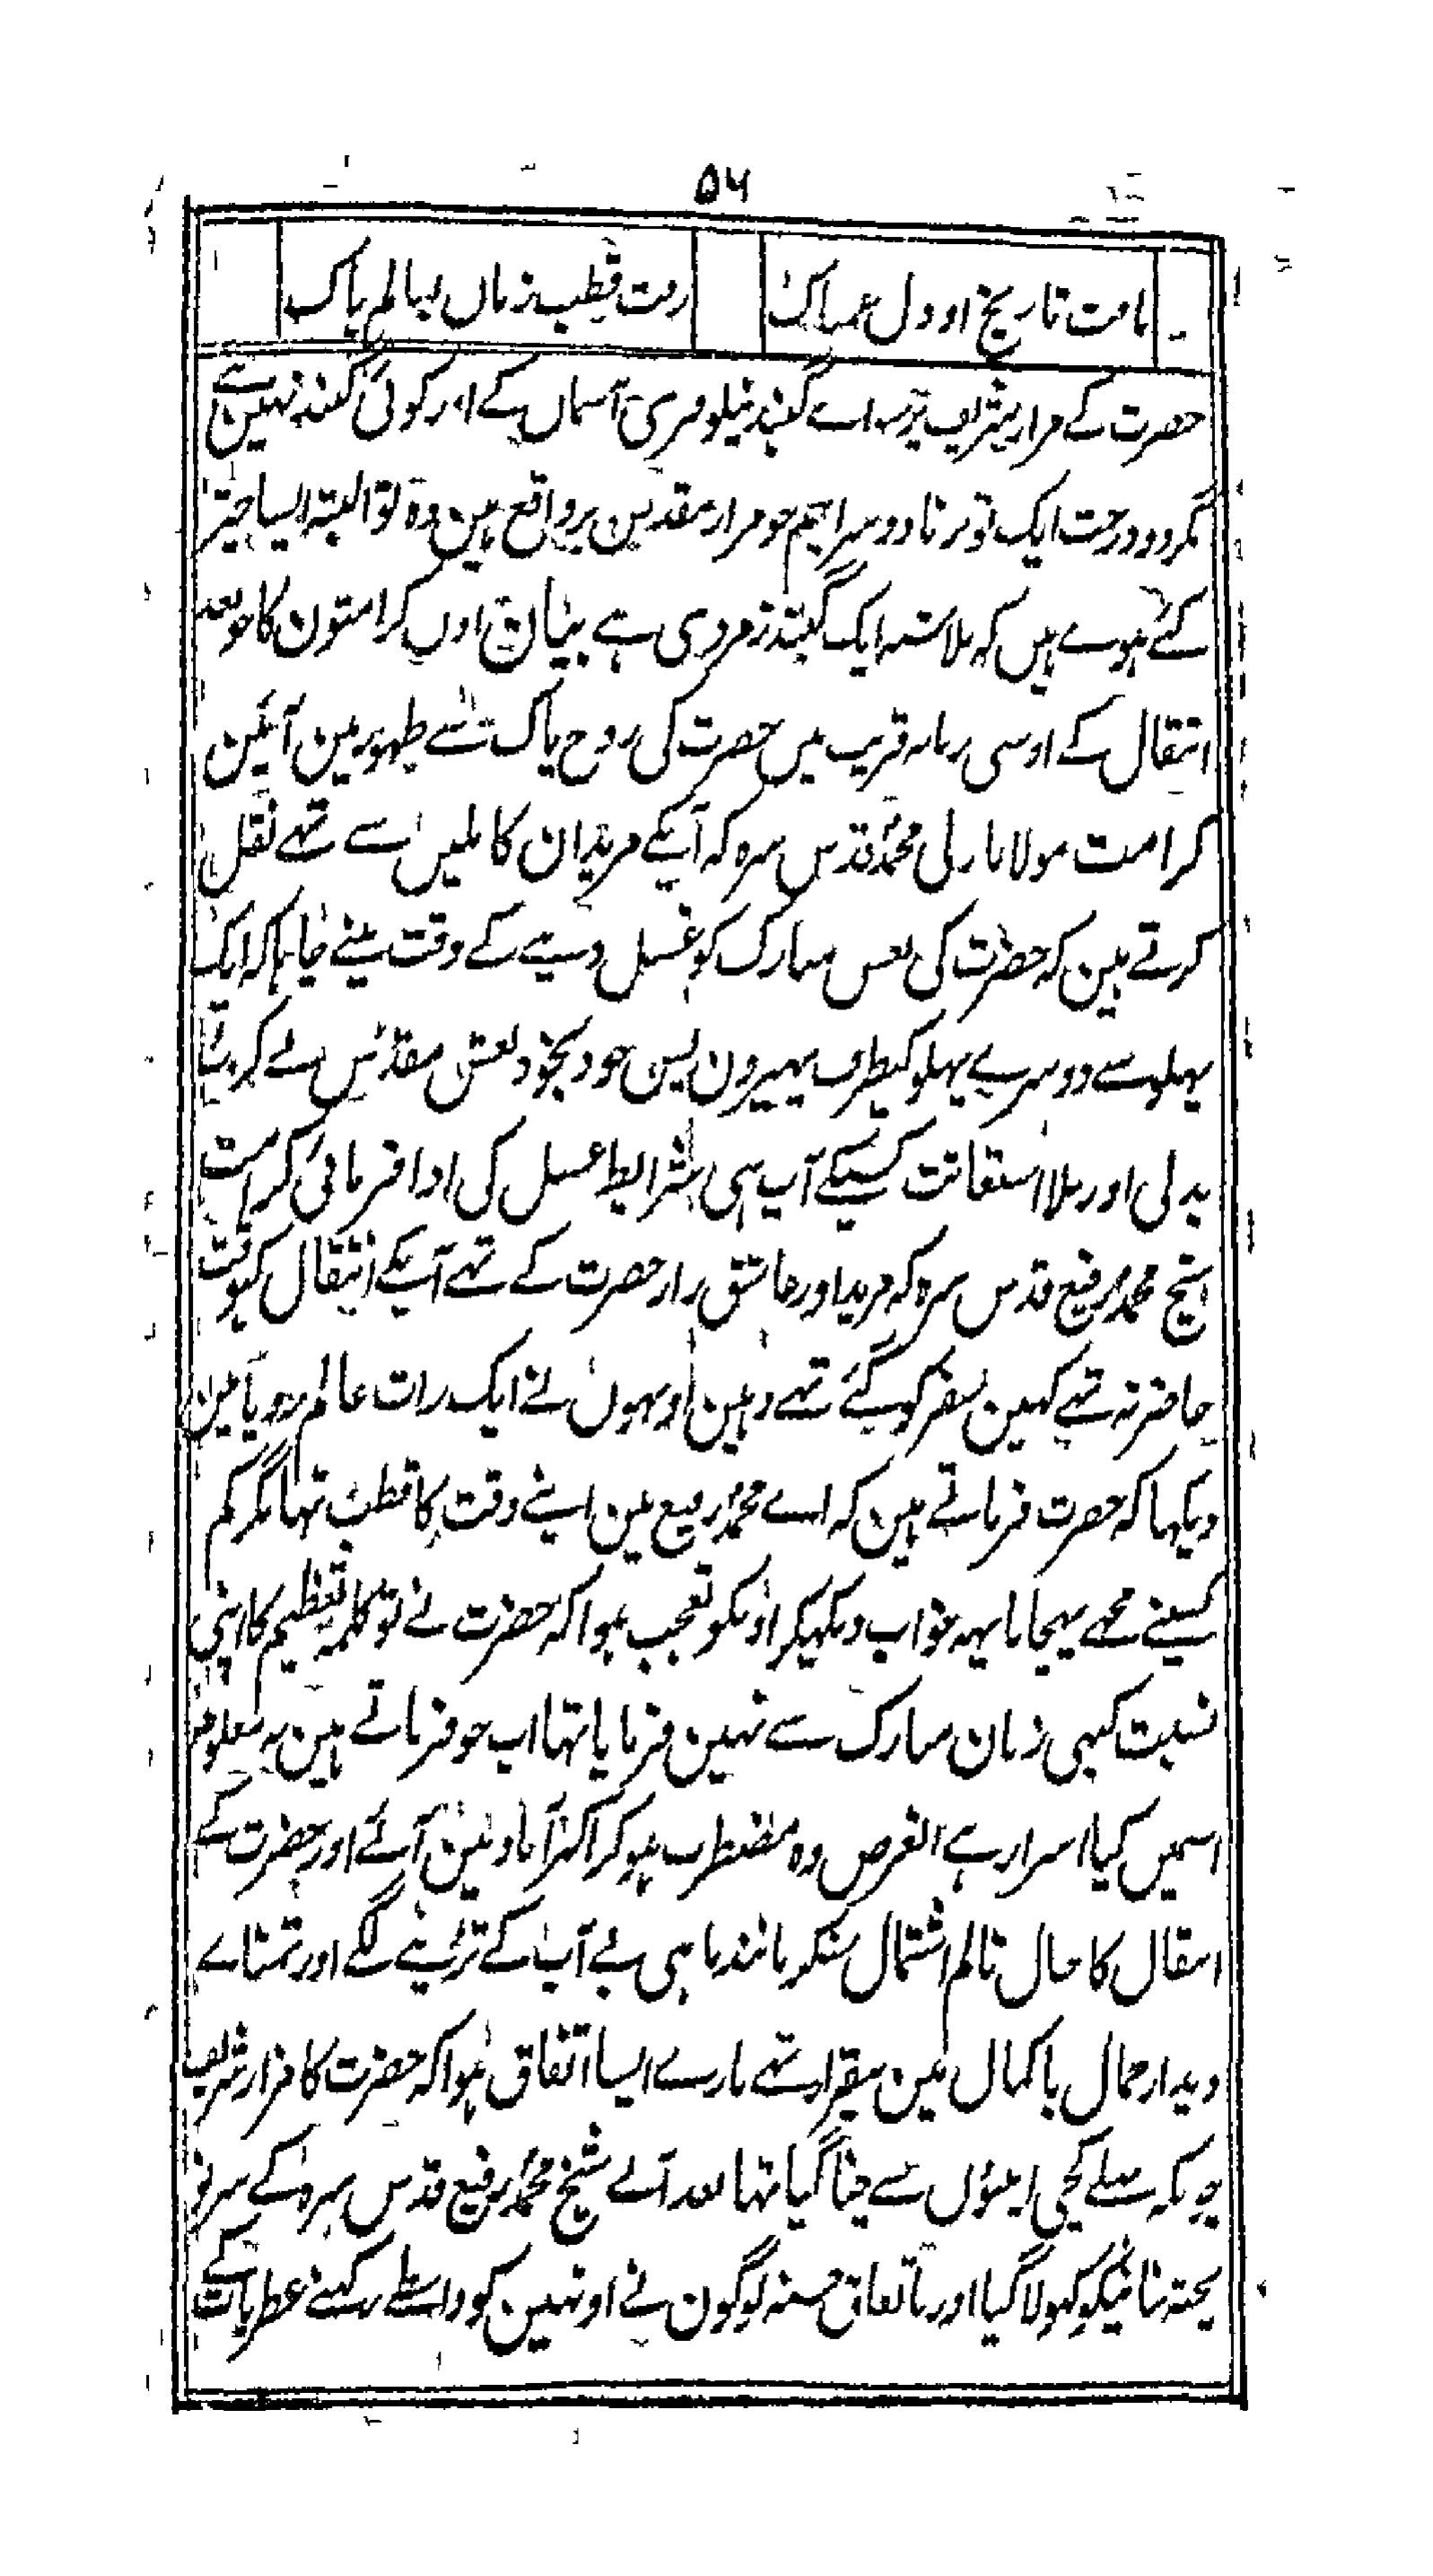 ۵۶
یافت تاریخ او دل غمناک
رفت قطب زماں بعالم پاک
حضرت کے مزار شریف پر سواے گنبد نیلوفری آسماں کے اور کوئی گنبد نہین ہے
مگر دو درخت ایک تو برنا دوسرا نیم جو مزار مقدس پر واقع ہین وہ تو البتہ ایسا چتر
کئے ہوے ہیں کہ بلا شبہ ایک گنبد زمردی ہے بیان اوں کرامتون کا جو بعد
انتقال کے اوسی زمانہ قریب میں حضرت کی روح پاک سے ظہور مین آئین
کرامت مولانا ولی محمد قدس سرہ کہ آپکے مریدان کاملیں سے تہے نقل
کرتے ہین کہ حضرت کی نعش مبارک کو غسل دینے کے وقت مینے چاہا کہ ایک
پہلو سے دوسرے پہلو کیطرف پہیرون پس خود بخود نعش مقدس نے کروٹ
بدلی اور بلا استعانت کسیکے آپ ہی شرایط غسل کی ادا فرمائی کرامت
شیخ محمد رفیع قدس سرہ کہ مرید اور عاشق زار حضرت کے تہے آپکے انتقال کیوقت
حاضر نہ تہے کہین سفر کو گئے تہے وہین اونہوں نے ایک رات عالم رویا مین
دیکہا کہ حضرت فرماتے ہین کہ اے محمد رفیع مین اپنے وقت کا قطب تہا مگر تم
کسینے مجہے نہ پہچانا یہہ خواب دیکہیکر اونکو تعجب ہوا کہ حضرت نے تو کلمہ تعظیم کا اپنی
نسبت کبہی زبان مبارک سے نہین فرمایا تہا اب جو فرماتے ہین نہ معلوم
اسمیں کیا اسرار ہے الغرض وہ مضطرب ہوکر اکبرآباد مین آئے اور حضرت کے
انتقال کا حال ملالم اشتمال سنکر مانند ماہی بے آب کے تڑپنے لگے اور تمناے
دیدار جمال باکمال مین بیقرار تہے بارے ایسا اتفاق ہوا کہ حضرت کا مزار شریف
چونکہ پہلے کچی اینٹوں سے چنا گیا تہا بعد آنے شیخ محمد رفیع قدس سرہ کے سرنو
پختہ بنانیکو کہولا گیا اور باتفاق حسنہ لوگون نے اونہین کو واسطے رکہنے عطریات کے